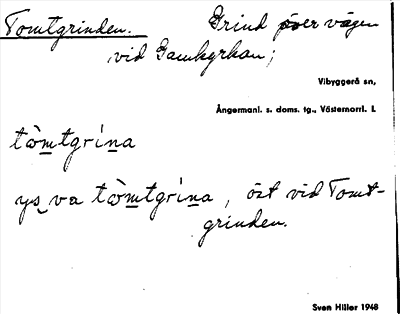 Tomtgrinden. Grind över vägen
vid Gamkyrkan;
Vibyggerå sn,
Ångermanl. s. doms. tg., Västernorrl. L
tò̀m̲tgrín̲a
ys va tò̀m̲tgrín̲a, öst vid Tomt-
grinden.
Sven Hiller 1948